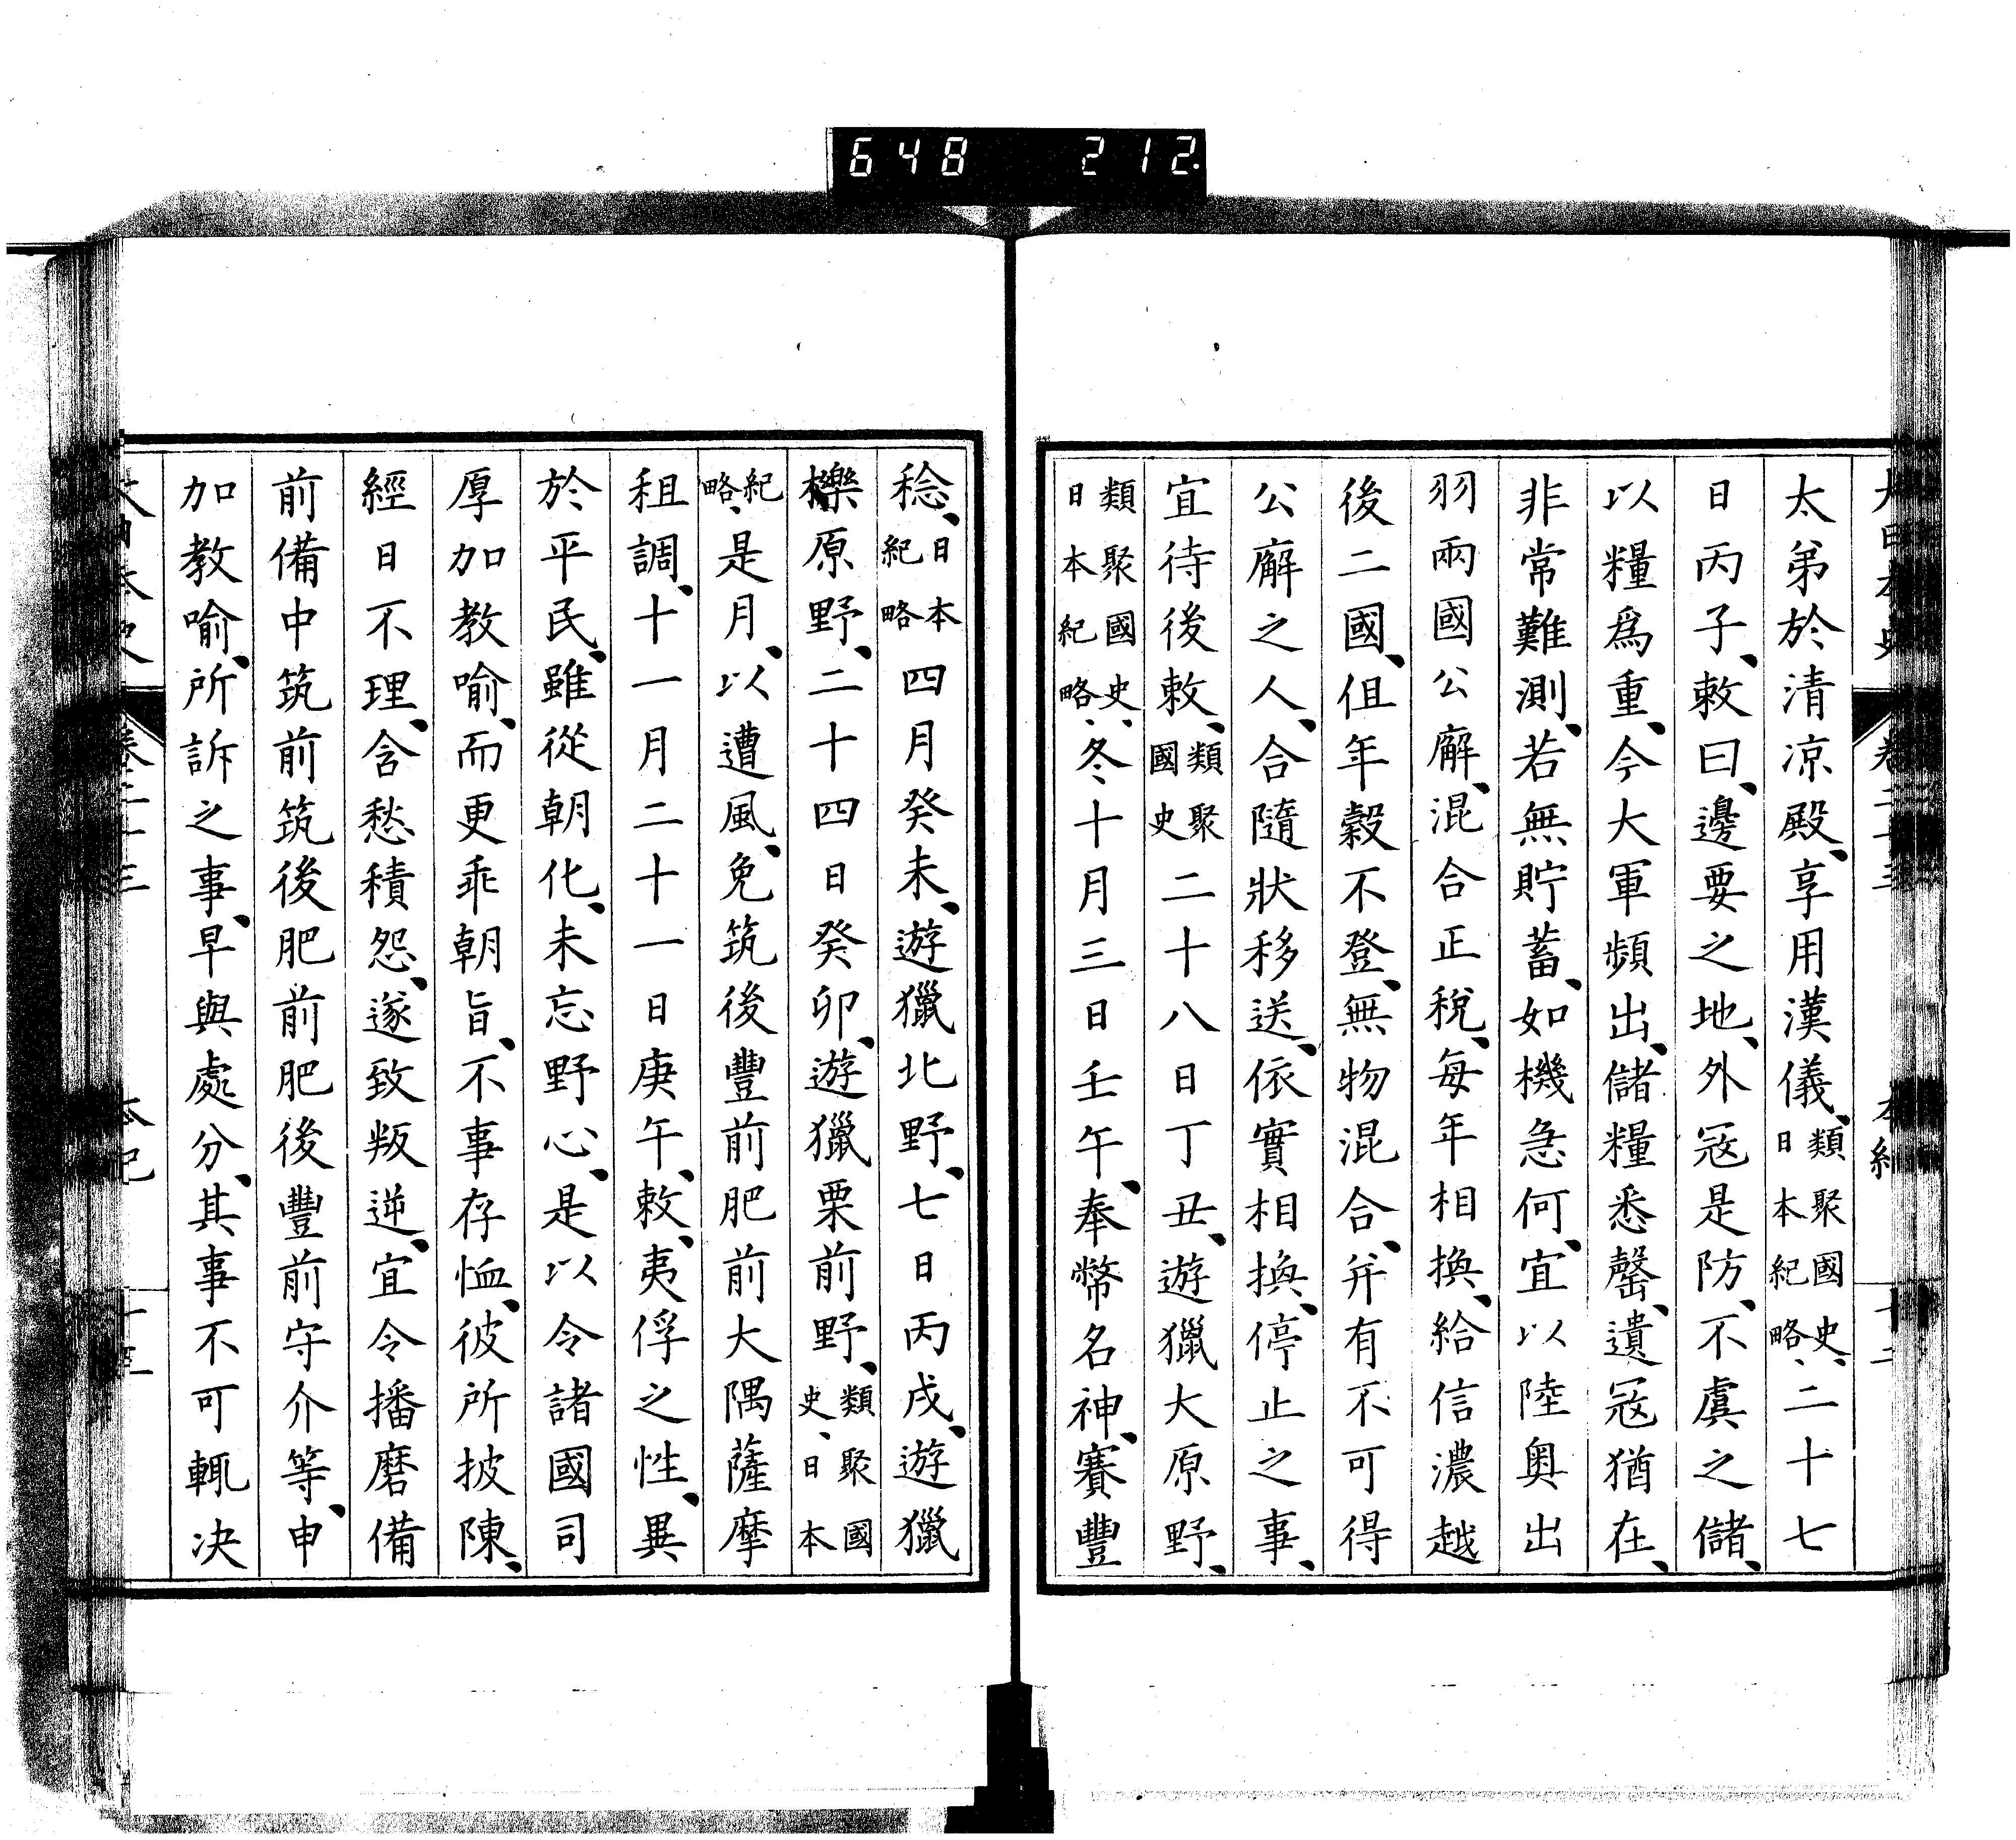 648 212
太弟於清凉殿、享用漢儀、類聚國史、日本紀略、二十七
日丙子、敕曰、邊要之地、外冦是防、不虞之儲、
以糧爲重、今大軍頻出、儲糧悉罄、遺冦猶在、
非常難測、若無貯蓄、如機急何、宜以陸奥出
羽兩國公廨、混合正税、每年相換、給信濃越
後二國、但年穀不登、無物混合、并有不可得
公廨之人、合隨狀移送、依實相換、停止之事、
宜待後敕、類聚國史二十八日丁丑、遊獵大原野、
類聚國史、日本紀略、冬十月三日壬午、奉幣名神、賽豐
稔、日本紀略四月癸未、遊獵北野、七日丙戌、遊獵
櫟原野、二十四日癸卯、遊獵栗前野、類聚國史、日本
紀略、是月、以遭風、免筑後豐前肥前大隅薩摩
租調、十一月二十一日庚午、敕、夷俘之性、異
於平民、雖從朝化、未忘野心、是以令諸國司
厚加教喻、而更乖朝旨、不事存恤、彼所披陳、
經日不理、含愁積怨、遂致叛逆、宜令播磨備
前備中筑前筑後肥前肥後豐前守介等、申
加教喻、所訴之事、早與處分、其事不可輒决